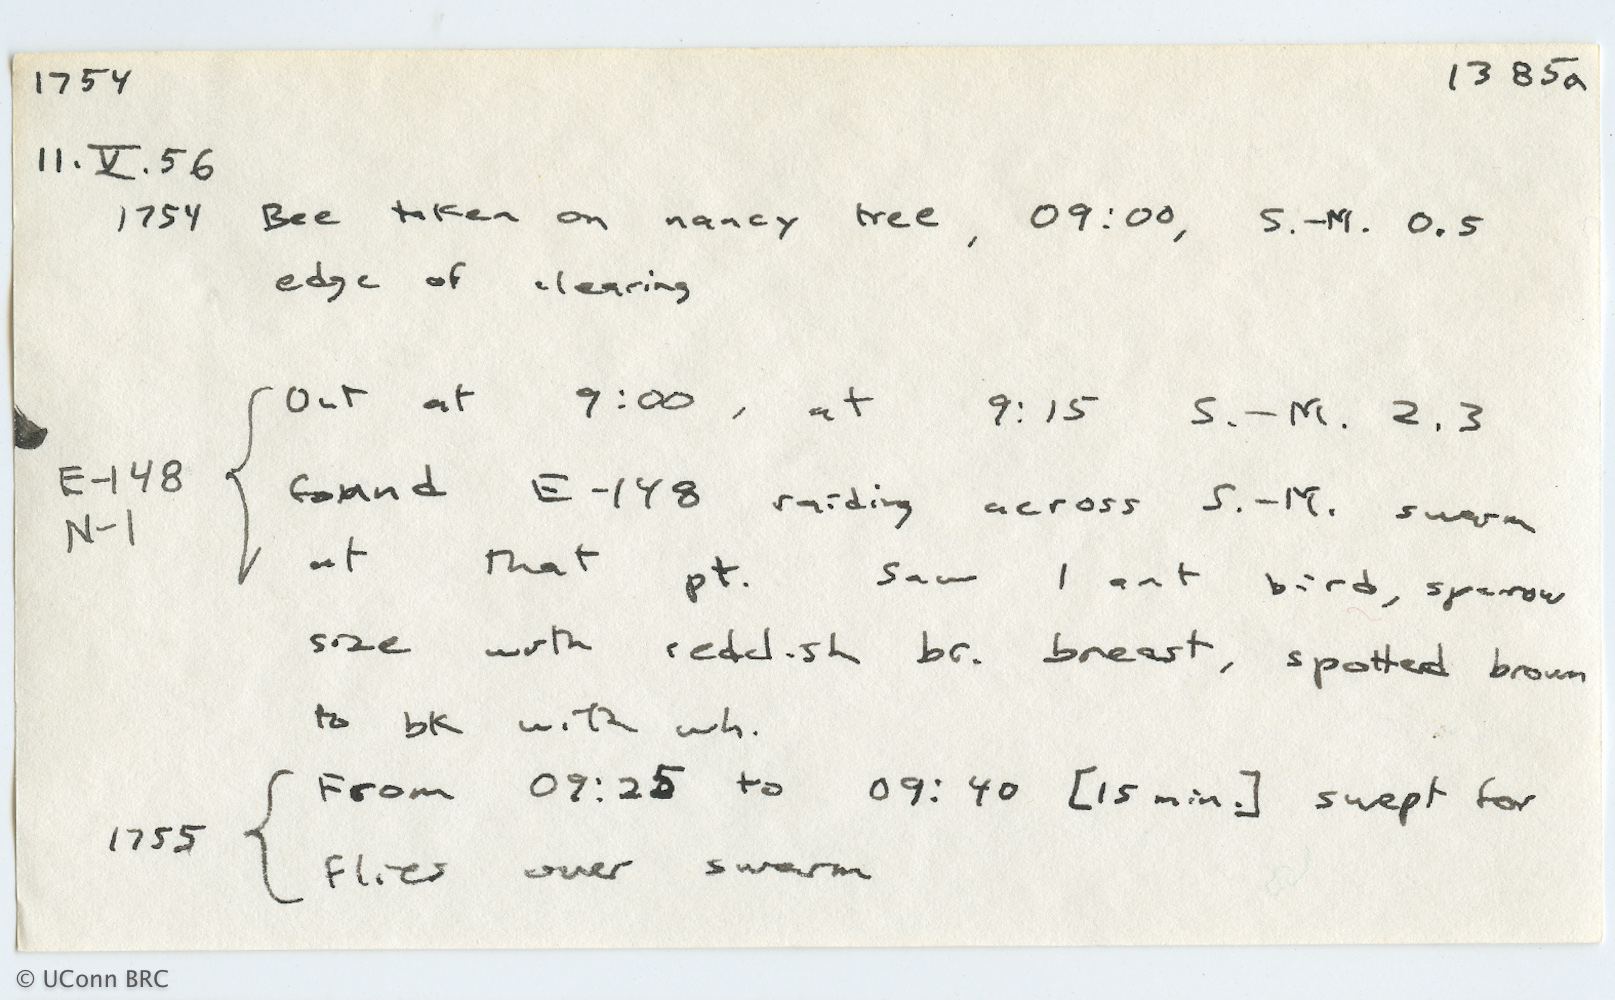 1754 1385a
11.V.56
1754 Bee taken on nancy tree, 09:00, S.-M. 0.5
edge of clearing
Out at 9:00, at 9:15 S.-M. 2.3
E-148 found E-148 raiding across S.-M. swarm
N-1 at that pt. Saw 1 ant bird, sparrow
size with reddish br. breast, spotted brown
to bk with wh.
From 09:25 to 09:40 [15 min.] swept for
1755 flies over swarm
© UConn BRC